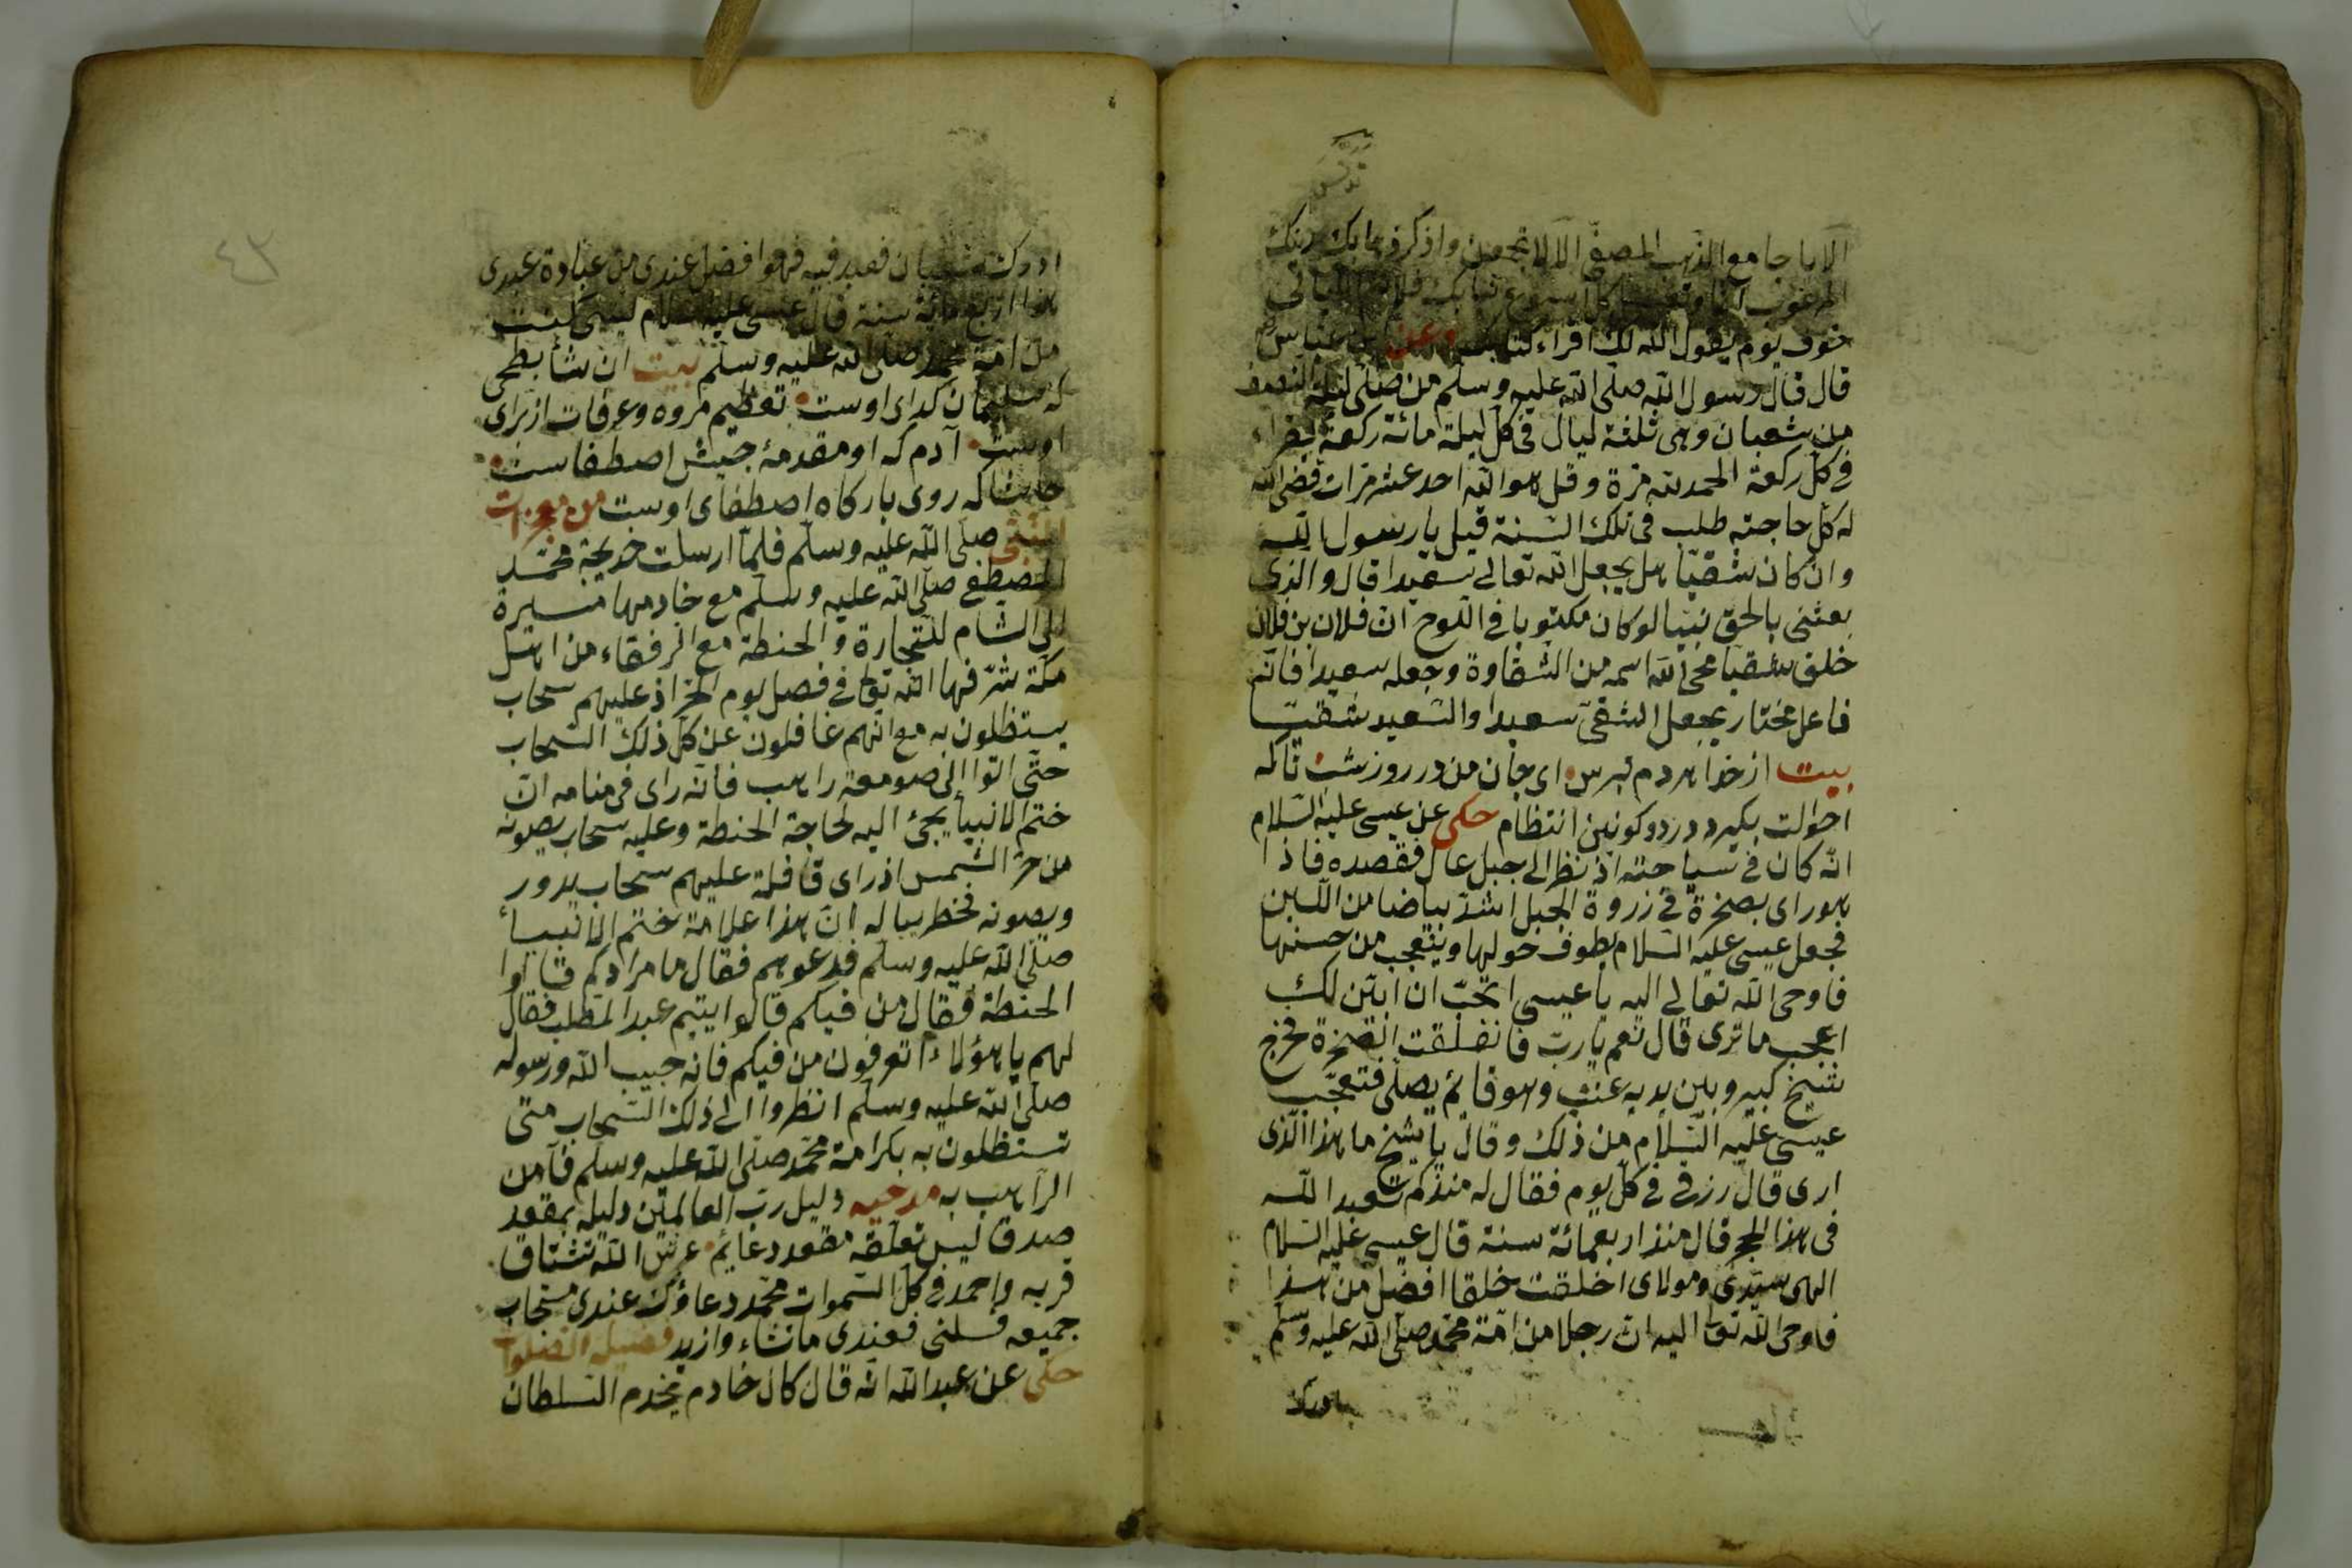 الا يا جامع الذهب المصفى الا لا تجمعن واذكر ذهابك
خوف يوم يقول الله لك اقراء كتابك وعن ابن عباس
قال قال رسول الله صلى الله عليه وسلم من صلى ليلة النصف
من شعبان وهى ثلثة ليال فى كل ليلة مائة ركعة يقراء
فى كل ركعة الحمد لله مرة وقل هو الله احد عشر مرات قضى الله
له كل حاجته طلب فى تلك السنة قيل يا رسول الله
وان كان شقيا هل يجعل الله تعالى سعيدا قال والذى
بعثنى بالحق نبيا لو كان مكتوبا فى اللوح ان فلان بن فلان
خلق شقيا محى الله اسمه من الشقاوة وجعله سعيدا فانه
فاعل مختار يجعل الشقى سعيدا والسعيد شقيا
بيت از خدا هر دم بترس اى جان من در روز شب تا كه
احوالت بكيرد در دو كونين انتظام حكى عن عيسى عليه السلام
انه كان فى سياحته اذ نظر الى جبل عال فقصده فاذا
هو راى بصخرة فى زروة الجبل اشد بياضا من اللبن
فجعل عيسى عليه السلام يطوف حولها ويتعجب من حسنها
فاوحى الله تعالى اليه يا عيسى اتحب ان ابين لك
اعجب ما ترى قال نعم يا رب فانفلقت الصخرة فخرج
شيخ كبير وبين يديه عنب وهو قائم يصلى فتعجب
عيسى عليه السلام من ذلك وقال يا شيخ ما هذا الذى
ارى قال رزقى فى كل يوم فقال له منذكم تعبد الله
فى هذا الحجر قال منذ اربعمائة سنة قال عيسى عليه السلام
الهى سيدى ومولاى اخلقت خلقا افضل من هذا
فاوحى الله تعا اليه ان رجلا من امة محمد صلى الله عليه وسلم
ادرك شعبان فعبد فيه فهو افضل عندى من عبادة عبدى
هذا اربع مائة سنة قال عيسى عليه السلام ليتنى كنت
من امة محمد صلى الله عليه وسلم بيت ان شأ بطحى
كه سليمان كداى اوست تعظيم مروه وعرفات از براى
اوست آدم كه او مقدمۀ جيش اصطفاست
حاشا كه روى باركاه اصطفاى اوست من معجزات
النبى صلى الله عليه وسلم فلما ارسلت خديجة محمد
المصطفى صلى الله عليه وسلم مع خادمها ميسرة
الى الشام للتجارة والحنطة مع الرفقاء من اهل
مكة شرفها الله تعا فى فصل يوم الحر اذ عليهم سحاب
يستظلون به مع انهم غافلون عن كل ذلك السحاب
حتى اتوا الى صومعة راهب فانه راى فى منامه ان
ختم الانبيأ يجئ اليه لحاجة الحنطة وعليه سحاب يصونه
من حر الشمس اذ راى قافلة عليهم سحاب يدور
ويصونه فخطر بباله ان هذا علامة ختم الانبيأ
صلى الله عليه وسلم فدعوهم فقال ما مرادكم قالوا
الحنطة فقال من فيكم قالوا يتيم عبد المطلب فقال
لهم يا هؤلاء اتعرفون من فيكم فانه حبيب الله ورسوله
صلى الله عليه وسلم انظروا الى ذلك السحاب متى
تستظلون به بكرامة محمد صلى الله عليه وسلم فآمن
الراهب به مدحيه دليل رب العالمين دليله بمقعد
صدق ليس تعلقه مقعد دعايم عرش الله تشتاق
قربه واحمد فى كل السموات محمد دعاؤك عندى مستجاب
جميعه فسلنى فعندى ما تشاء وازيد فضيلة الصلوات
حكى عن عبد الله انه قال كان خادم يخدم السلطان